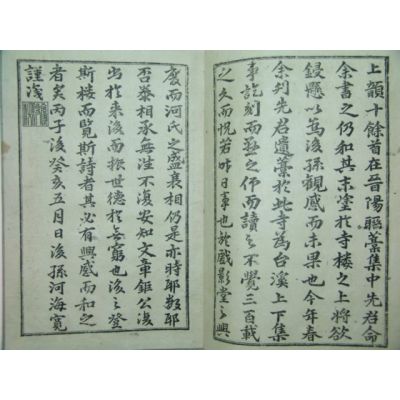 上韻十餘首在晉陽聯藁集中先君命
余書之仍和其末堂於寺楼之上將欲
鋟懸以篤後孫觀感而未果也今年春
余刋先君遺藁於此寺為台溪上下集
事訖刻而之伻而讀之不覺三百載
之久而怳若昨日事也於感影堂之興
廢而河氏之盛衰相仍是亦時耶数耶
否泰相承無徃不復安知文章鉅公復
出於来後而振世德於無窮也後之登
斯楼而覧斯詩者其必有興感而和之
者矣丙子後癸亥五月日後孫河海寬
謹